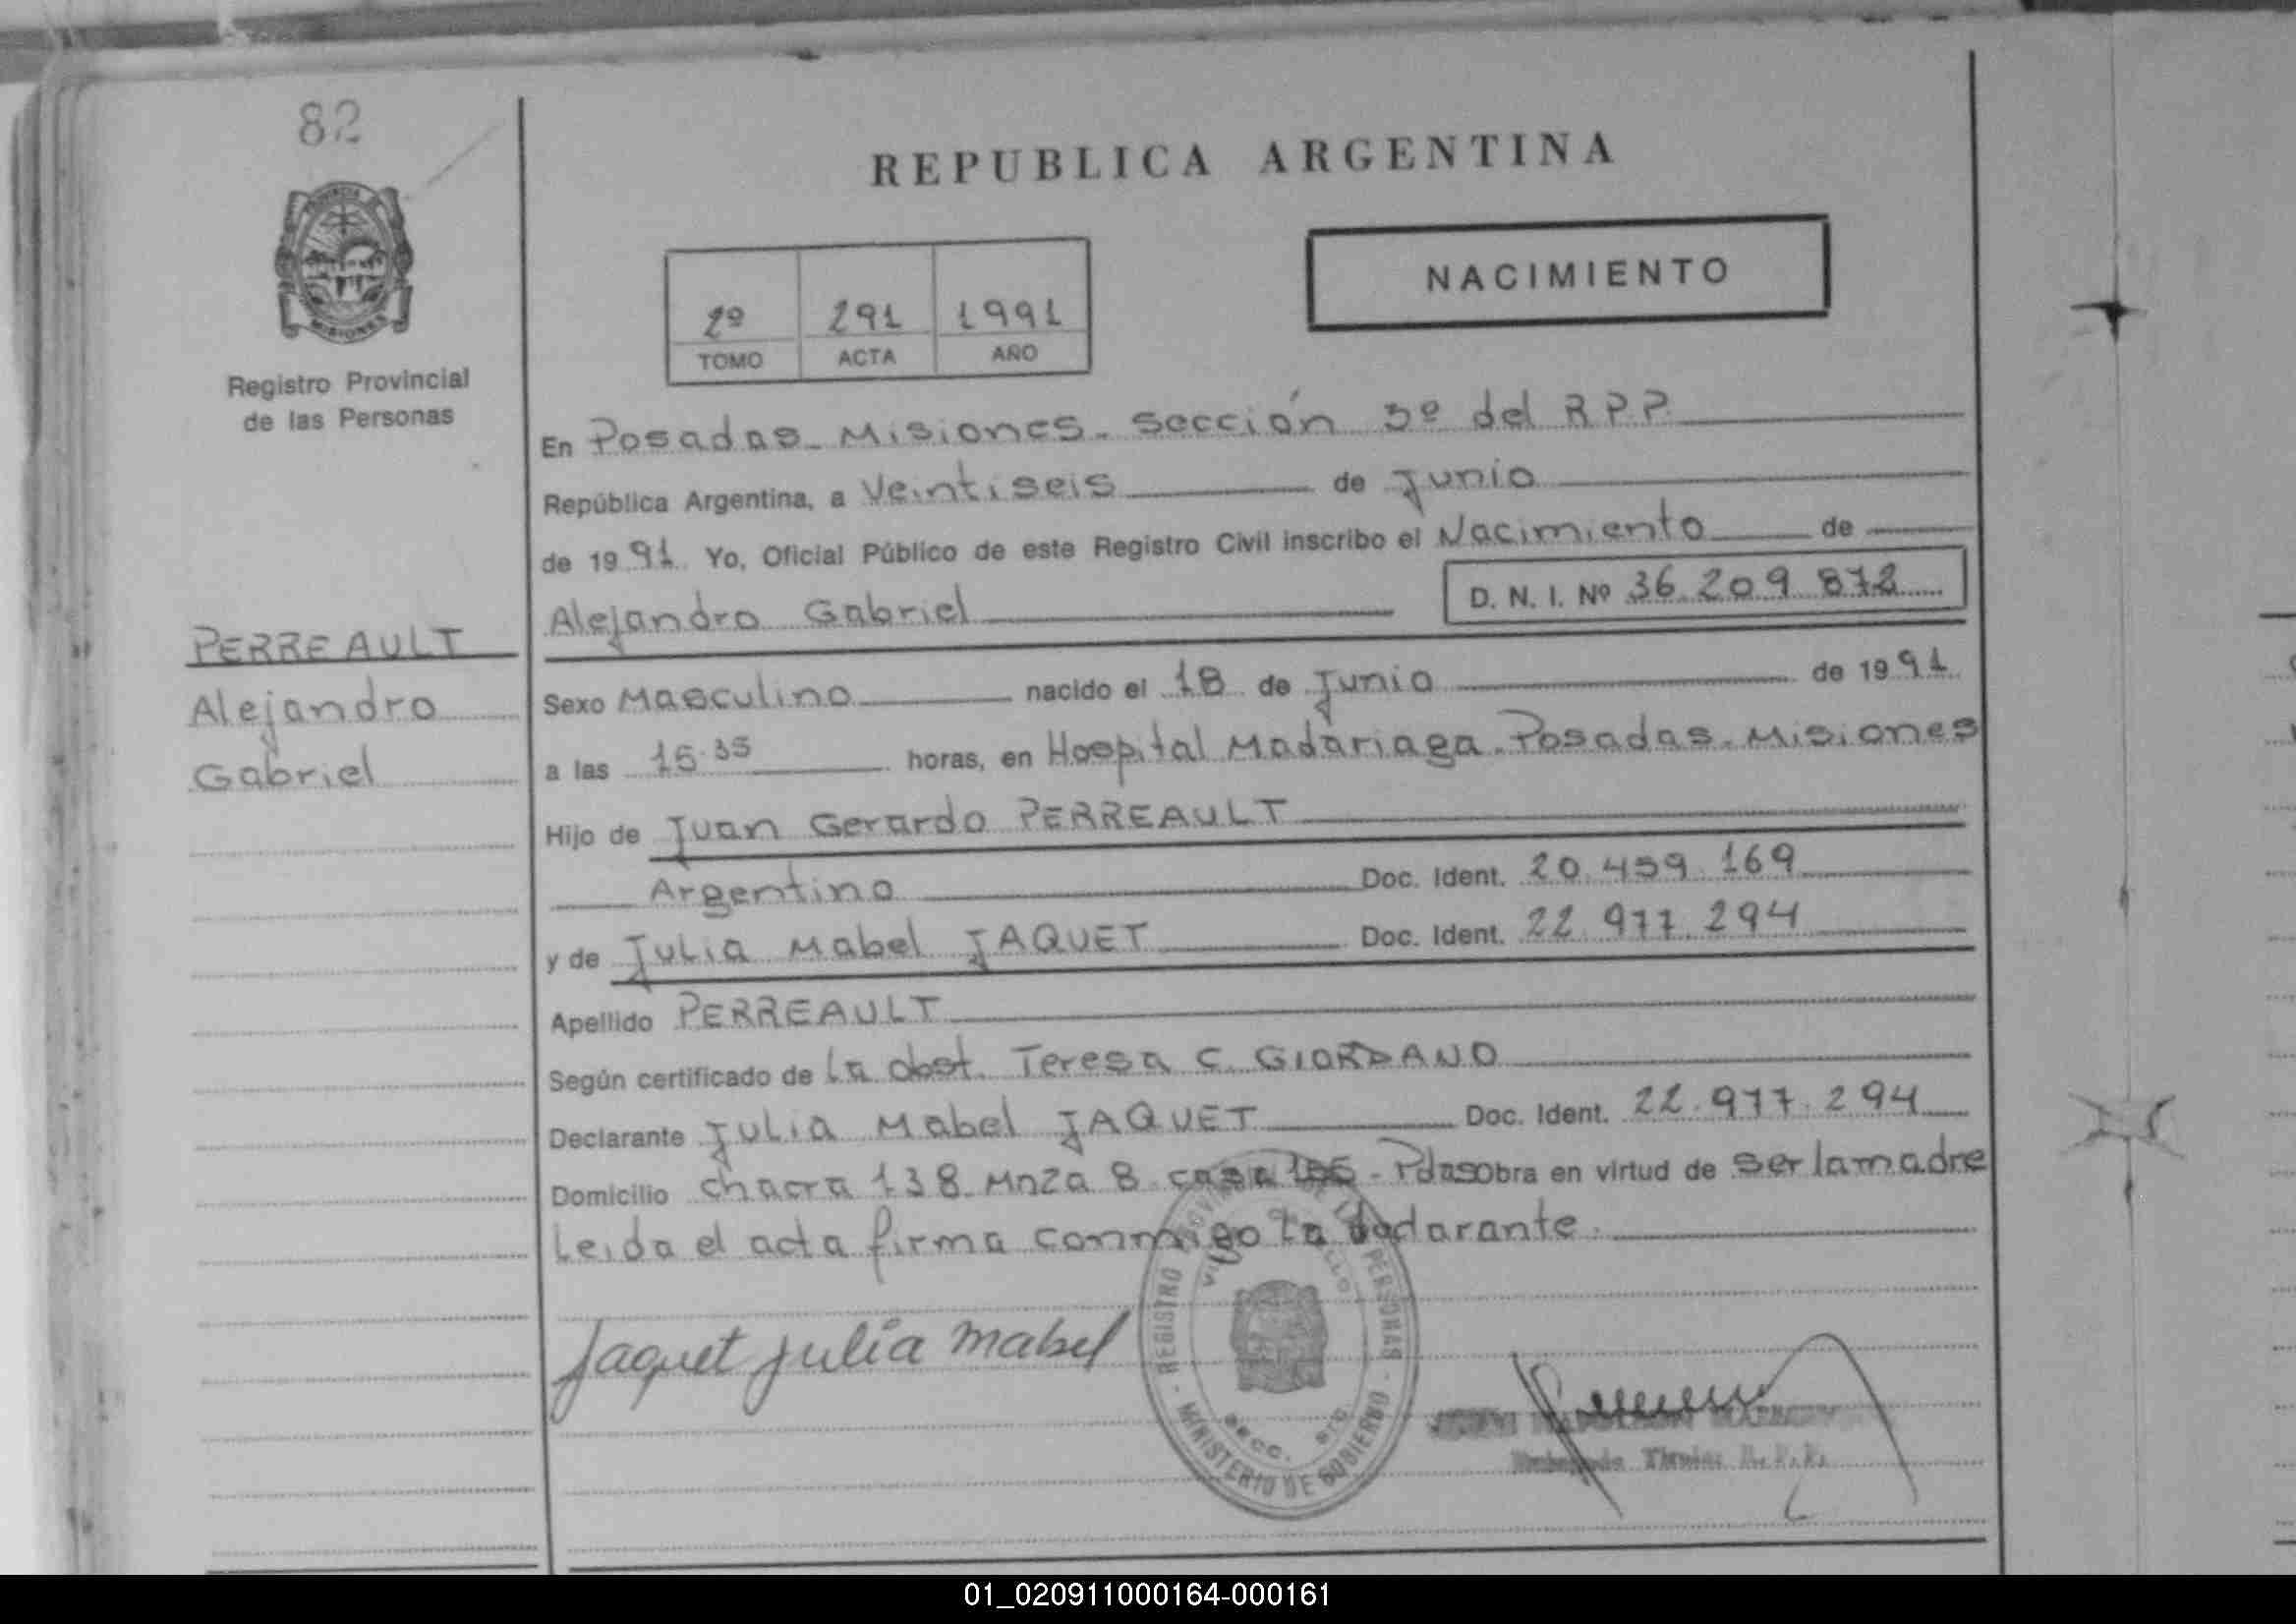 82
REPUBLICA ARGENTINA
NACIMIENTO
2º 291 1991
TOMO ACTA AÑO
PROVINCIA
MISIONES
Registro Provincial
de las Personas
En Posadas - Misiones. Sección 3º del R P P.
República Argentina, a Veintiseis de Junio
de 1991. Yo, Oficial Público de este Registro Civil inscribo el Nacimiento de
Alejandro Gabriel
D. N. I. Nº 36.209.872
PERREAULT
Alejandro
Gabriel
Sexo Masculino nacido el 18 de Junio de 1991.
a las 15.35 horas, en Hospital Madariaga. Posadas. Misiones
Hijo de Juan Gerardo PERREAULT
Argentino Doc. Ident. 20.459.169
y de Julia Mabel JAQUET Doc. Ident. 22.977.294
Apellido PERREAULT
Según certificado de La obst. Teresa C. GIORDANO
Declarante Julia Mabel JAQUET Doc. Ident. 22.977.294
Domicilio chacra 138 Mnza 8 casa - Pdas obra en virtud de ser la madre
Leida el acta firma conmigo la declarante.
Jaquet Julia Mabel
REGISTRO PERSONAS
SECC.
MINISTERIO DE GOBIERNO
R. P. P.
01_020911000164-000161